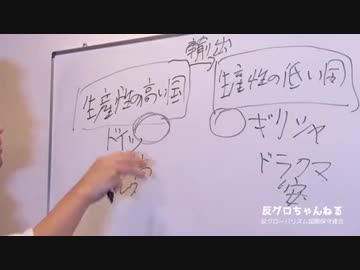 輸出
生産性の高い国
生産性の低い国
ドイツ
ギリシャ
ドラクマ
安
反グロちゃんねる
反グローバリズム国際保守連合